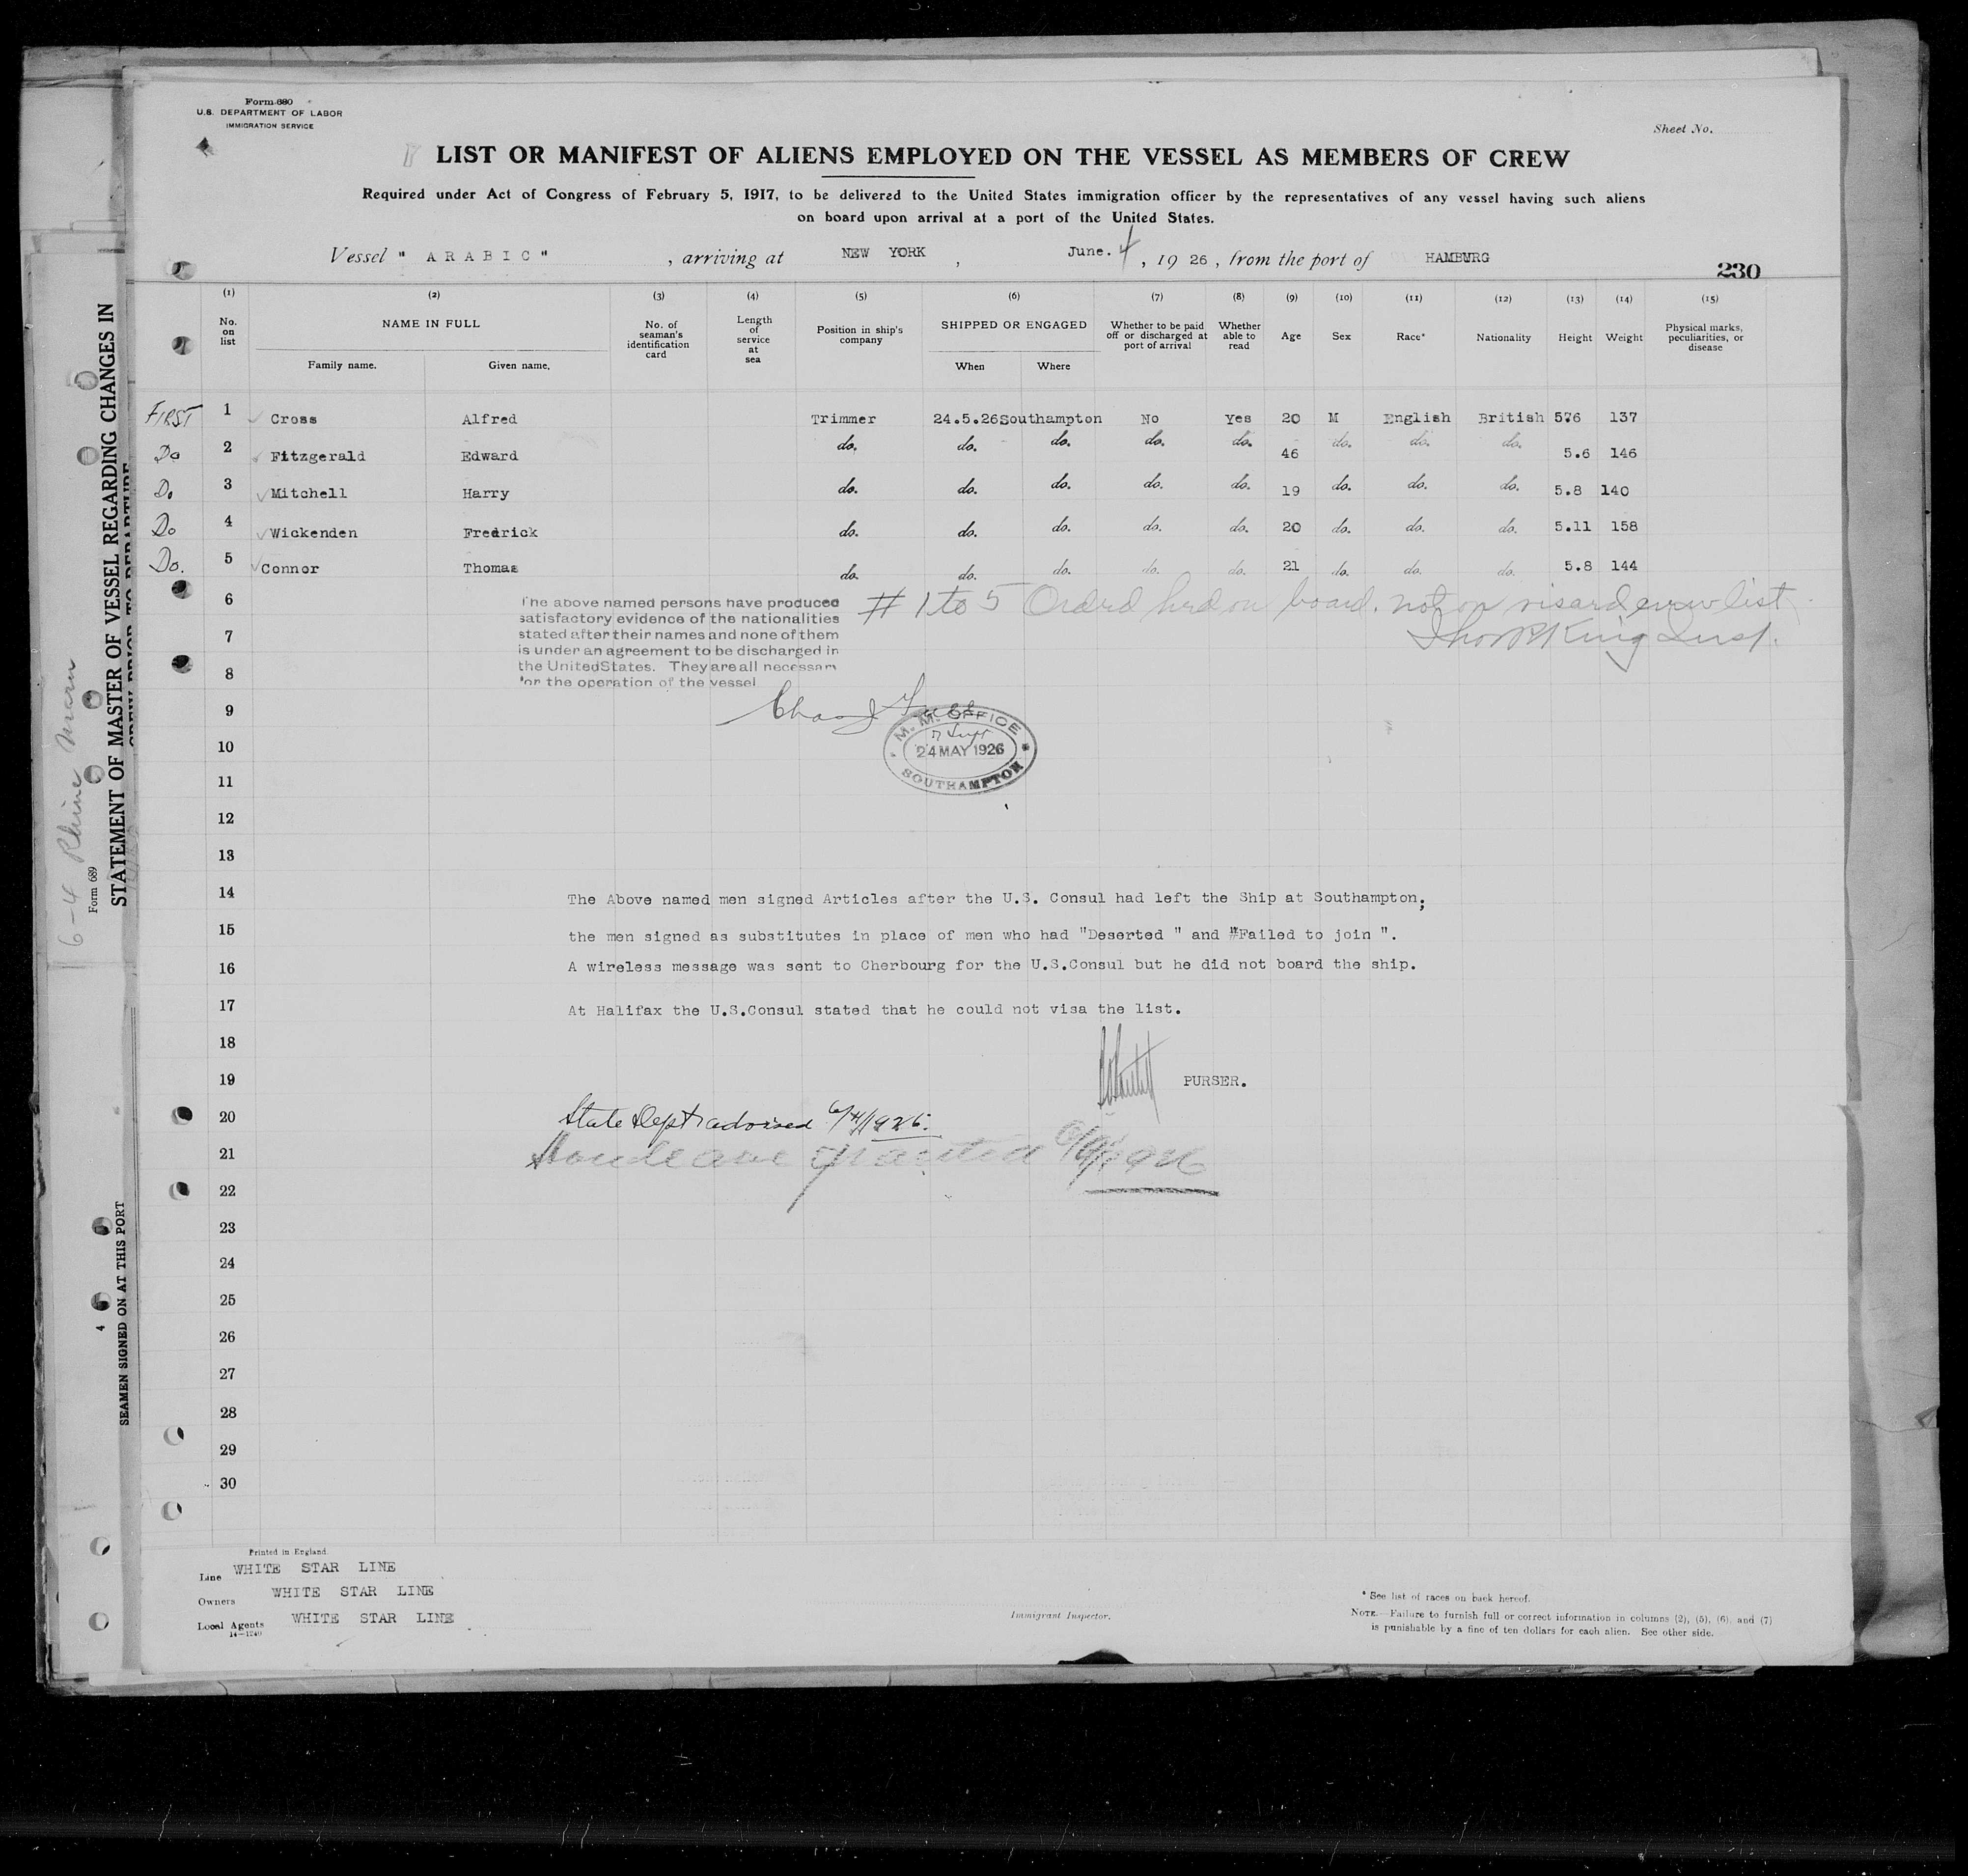 Form 680
U.S. DEPARTMENT OF LABOR
IMMIGRATION SERVICE
Sheet No.
LIST OR MANIFEST OF ALIENS EMPLOYED ON THE VESSEL AS MEMBERS OF CREW
Required under Act of Congress of February 5, 1917, to be delivered to the United States immigration officer by the representatives of any vessel having such aliens
on board upon arrival at a port of the United States.
Vessel " ARABIC " , arriving at NEW YORK , June. 4 , 19 26 , from the port of HAMBURG
230
(1) (2) (3) (4) (5) (6) (7) (8) (9) (10) (11) (12) (13) (14) (15)
No. on list NAME IN FULL No. of seaman's identification card Length of service at sea Position in ship's company SHIPPED OR ENGAGED Whether to be paid off or discharged at port of arrival Whether able to read Age Sex Race* Nationality Height Weight Physical marks, peculiarities, or disease
Family name. Given name. When Where
FIRST 1 Cross Alfred Trimmer 24.5.26 Southampton No Yes 20 M English British 5?6 137
Do 2 Fitzgerald Edward do. do. do. do. do. 46 do. do. do. 5.6 146
Do 3 Mitchell Harry do. do. do. do. do. 19 do. do. do. 5.8 140
Do 4 Wickenden Fredrick do. do. do. do. do. 20 do. do. do. 5.11 158
Do. 5 Connor Thomas do. do. do. do. do. 21 do. do. do. 5.8 144
6
7
8
9
10
11
12
13
14
15
16
17
18
19
20
21
22
23
24
25
26
27
28
29
30
The above named persons have produced
satisfactory evidence of the nationalities
stated after their names and none of them
is under an agreement to be discharged in
the United States. They are all necessary
for the operation of the vessel
# 1 to 5 Ordrd on board. not on visard crew list
King Insp.
M. M. OFFICE
24 MAY 1926
SOUTHAMPTON
The Above named men signed Articles after the U.S. Consul had left the Ship at Southampton;
the men signed as substitutes in place of men who had "Deserted " and "Failed to join ".
A wireless message was sent to Cherbourg for the U.S.Consul but he did not board the ship.
At Halifax the U.S.Consul stated that he could not visa the list.
PURSER.
State Dept advised 6/4/1926.
granted
Printed in England.
Line WHITE STAR LINE
Owners WHITE STAR LINE
Local Agents WHITE STAR LINE
14—1240
Immigrant Inspector.
* See list of races on back hereof.
NOTE.—Failure to furnish full or correct information in columns (2), (5), (6), and (7)
is punishable by a fine of ten dollars for each alien. See other side.
Form 689
STATEMENT OF MASTER OF VESSEL REGARDING CHANGES IN
CREW PRIOR TO DEPARTURE
6-4 Rhine Maru
4
SEAMEN SIGNED ON AT THIS PORT